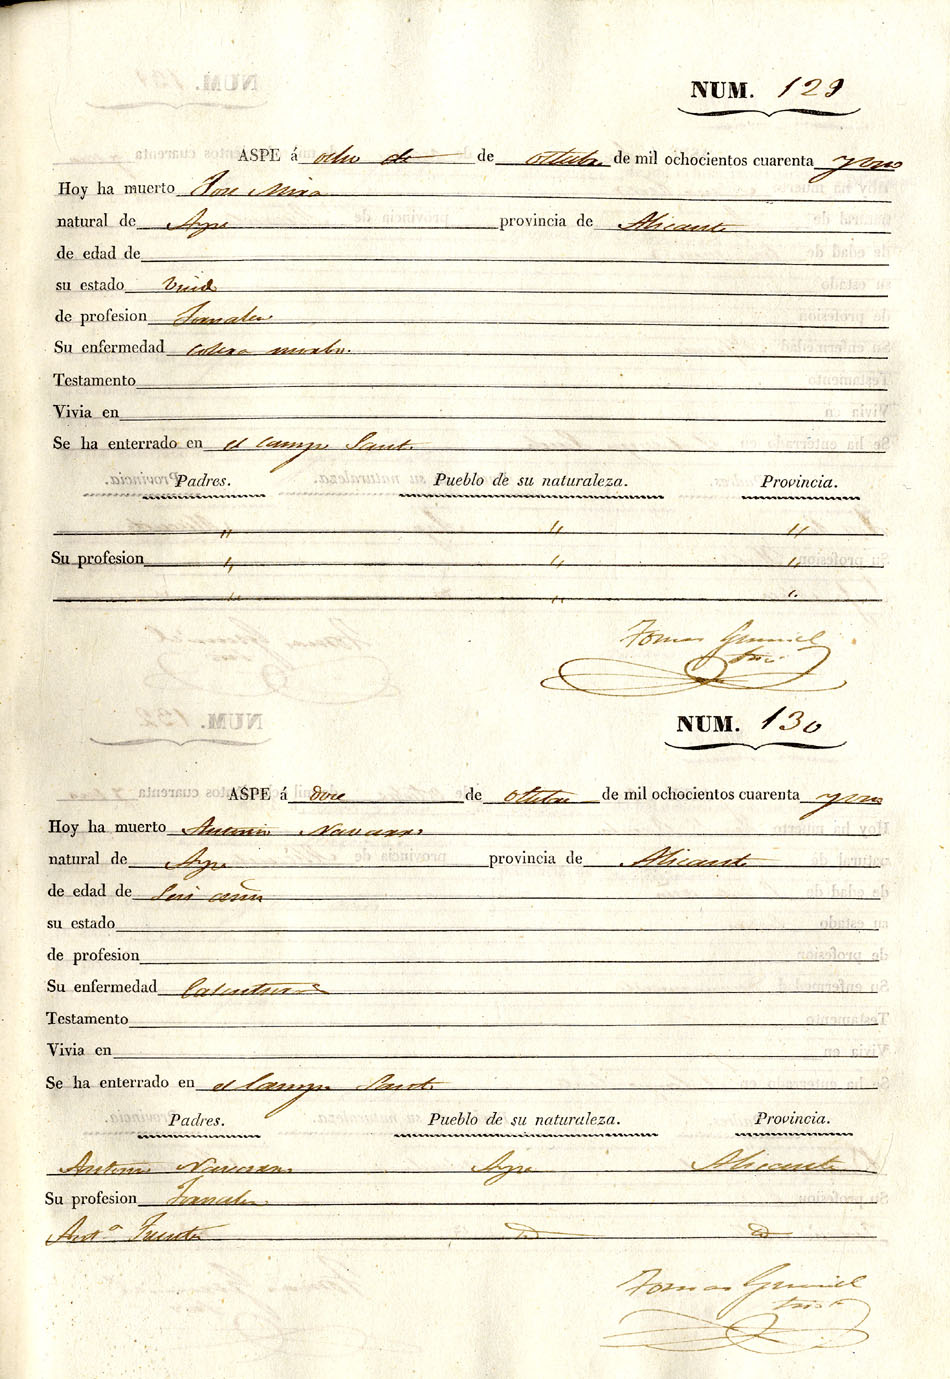 NUM. 129
ASPE á ocho de de octubre de mil ochocientos cuarenta y uno
Hoy ha muerto Jose Mira
natural de Aspe provincia de Alicante
de edad de
su estado Viudo
de profesion Jornalero
Su enfermedad colera morbo.
Testamento
Vivia en
Se ha enterrado en el Campo Santo
Padres. Pueblo de su naturaleza. Provincia.
" " "
Su profesion " " "
" " "
Tomas
NUM. 130
ASPE á doce de octubre de mil ochocientos cuarenta y uno
Hoy ha muerto Antonio Navarro
natural de Aspe provincia de Alicante
de edad de Seis años
su estado
de profesion
Su enfermedad Calenturas
Testamento
Vivia en
Se ha enterrado en el Campo Santo
Padres. Pueblo de su naturaleza. Provincia.
Antonio Navarro Aspe Alicante
Su profesion Jornalero
Antª
Tomas